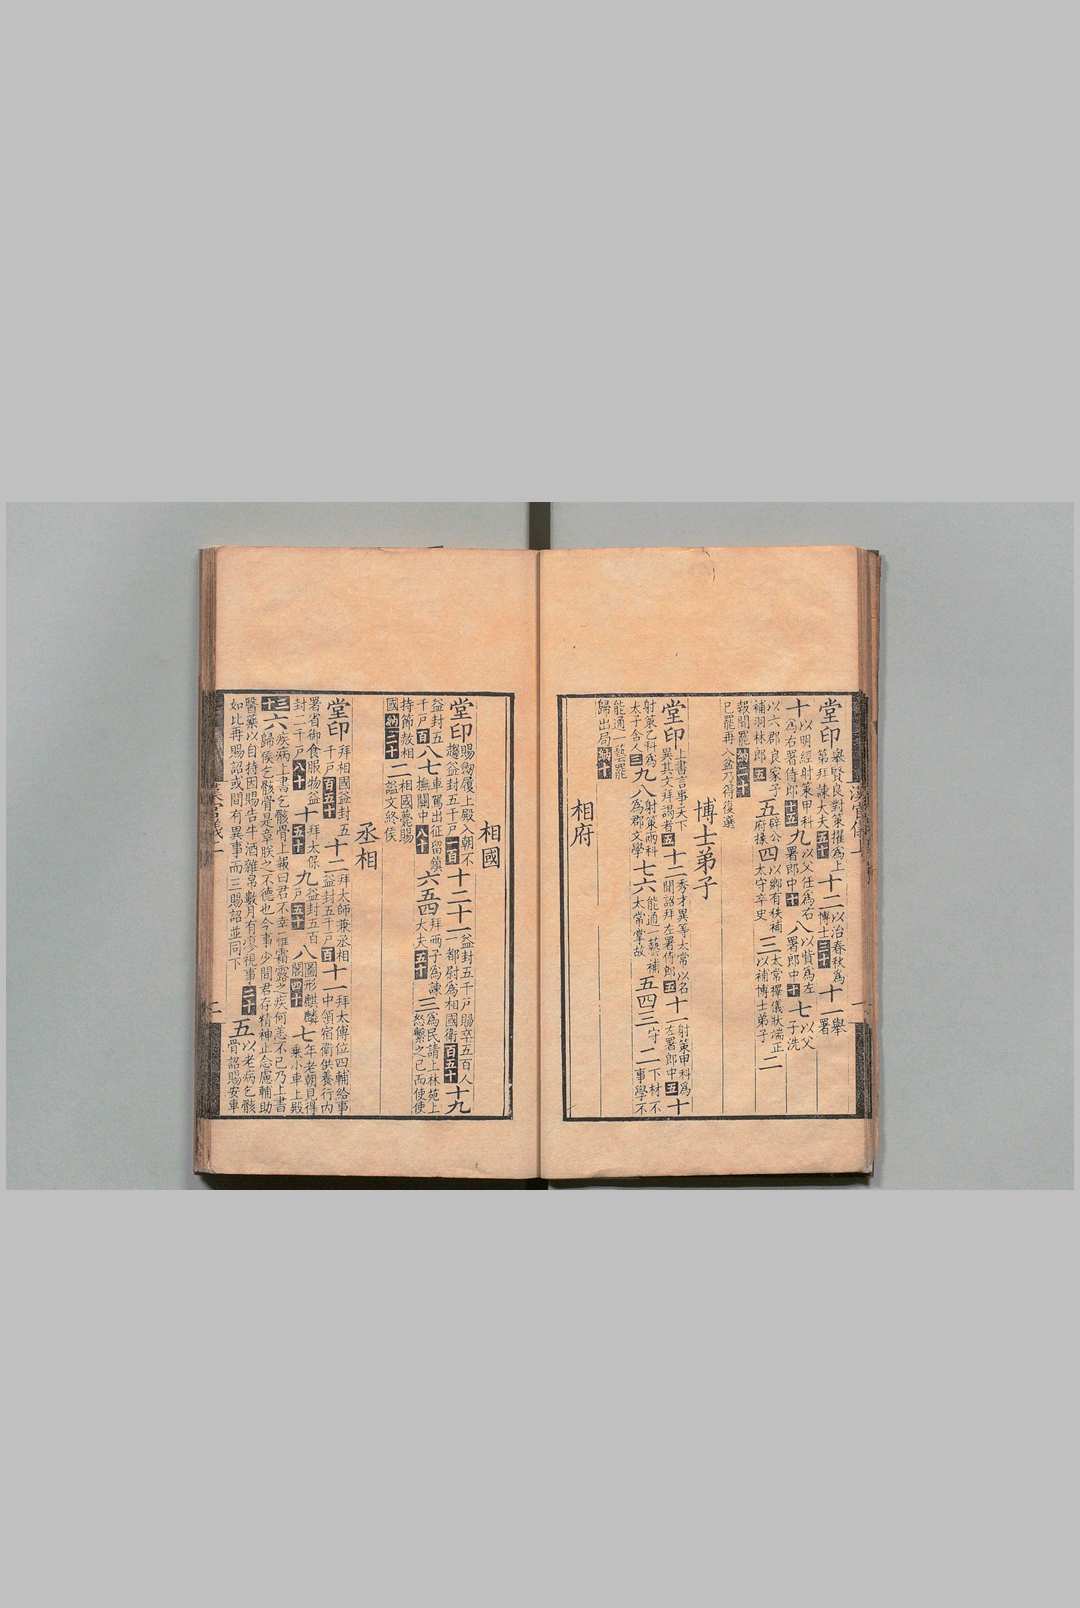 堂印舉賢良對策擢為上第拜諫大夫五十十二以治春秋為博士三十十一舉署
十以明經射策甲科為右署侍郎十五九以父任為右署郎中十八以貲為左署郎中十七以父子洗
以六郡良家子補羽林郎五五辟公府掾四以鄉有秩補太守卒史三太常擇儀狀端正以補博士弟子二
報聞罷納二十已罷再入盆乃得復選
博士弟子
堂印上書言事天下異其文拜謁者五十二秀才異等太常以名聞詔拜左署侍郎五十一射策甲科為左署郎中五十
射策乙科為太子舍人三九八射策丙科為郡文學七六能通一藝補太常掌故五四三守二下材不事學不
能通一藝罷歸出局納十
相府
相國
堂印賜劒履上殿入朝不趨益封五千戶一百十二十一益封五千戶賜卒五百人一都尉為相國衛百五十十九
益封五千戶百八七車駕出征留鎮撫關中八十六五四拜兩子為諫大夫五十三為民請上林苑上怒繫之已而使使
持節赦相國納二十二相國薨賜諡文終侯
丞相
堂印拜相國益封五千戶百五十十二拜太師兼丞相益封五千戶百十一拜太傅位四輔給事中領宿衛供養行內
署省御食服物益封二千戶八十十拜太保五十九益封五百戶五十八圖形麒麟閣四十七年老朝見得乘小車上殿
三十六疾病上書乞骸骨上報曰君不幸罹霜露之疾何恙不已乃上書歸侯乞骸骨是章朕之不德也今事少間君存精神止念慮輔助
醫藥以自持因賜告牛酒雜帛數月有瘳視事二十五以老病乞骸骨詔賜安車
如比再賜詔或間有異事而三賜詔並同下